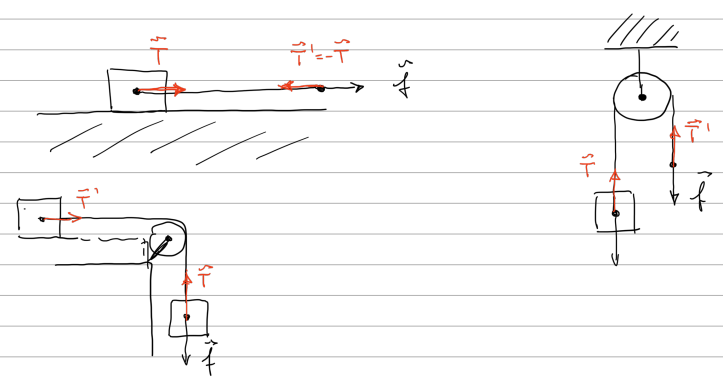 T⃗
T⃗' = -T⃗
f⃗
T⃗
T⃗'
f⃗
T⃗'
T⃗
f⃗